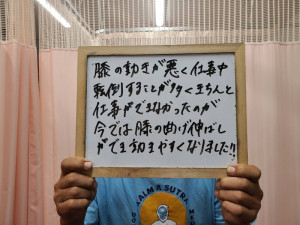 膝の動きが悪く仕事中
転倒することが多くきちんと
仕事ができなかったのが
今では膝の曲げ伸ばし
ができ動きやすくなりました!!
KALMA SUTRA